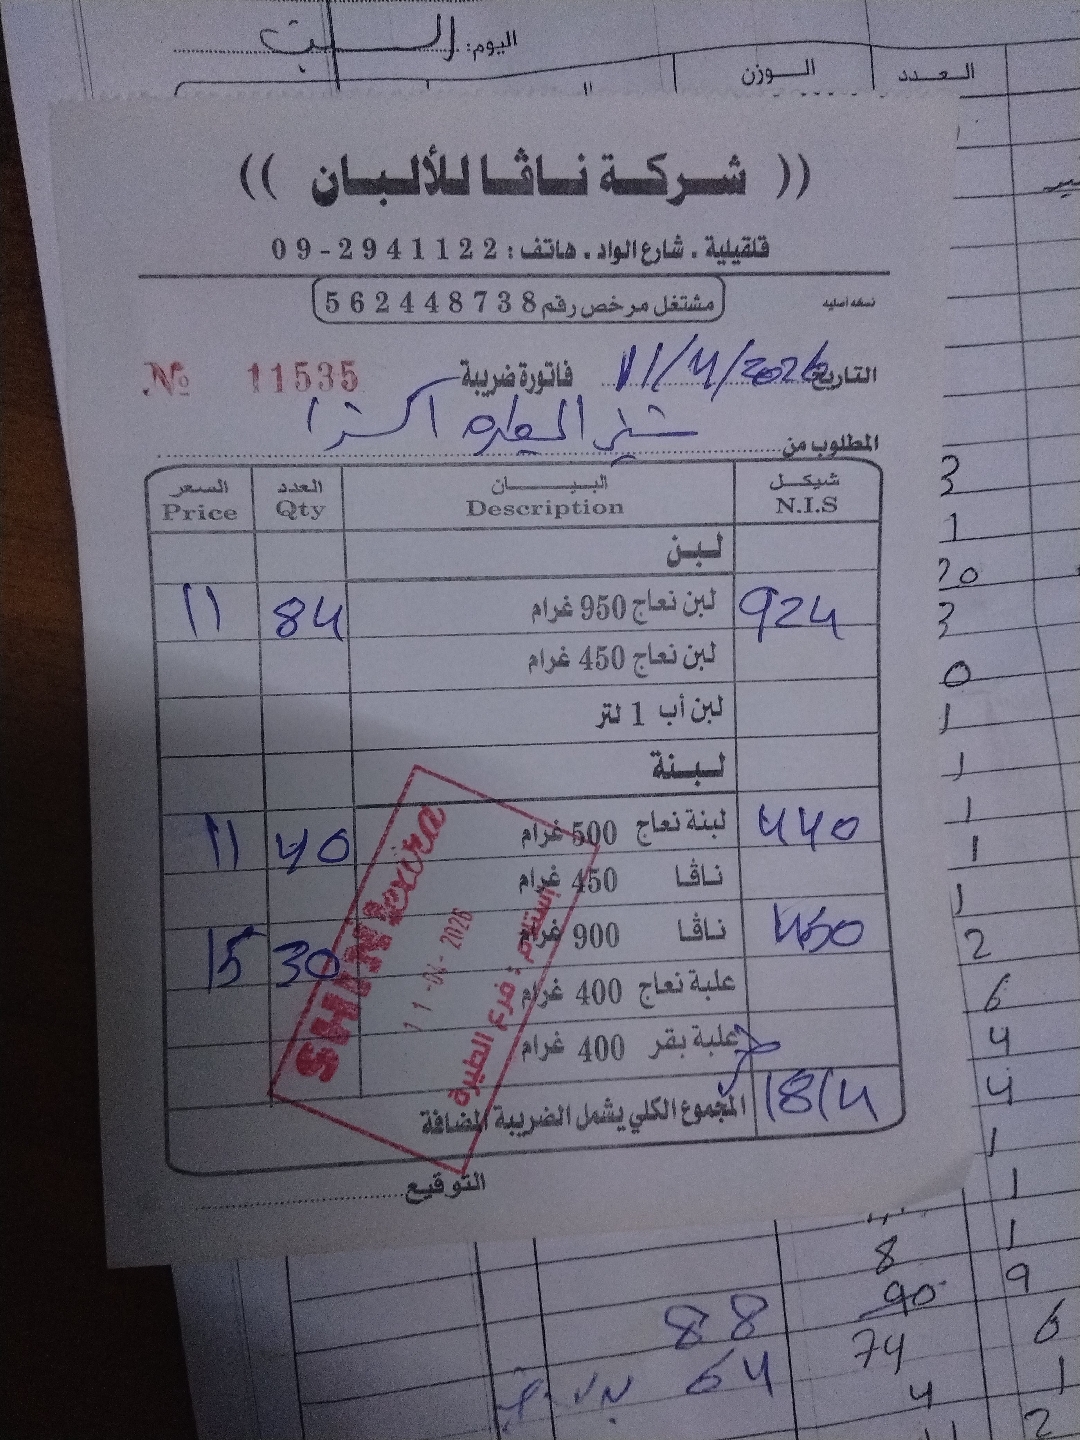 اليوم: السبت
العدد الوزن
(( شركة ناڤا للألبان ))
قلقيلية . شارع الواد . هاتف : 09-2941122
مشتغل مرخص رقم 562448738
نسخه أصليه
التاريخ 11/4/2026 فاتورة ضريبة № 11535
المطلوب من شني الطيره اكسترا
شيكل البيــان العدد السعر
N.I.S Description Qty Price
لبن
924 لبن نعاج 950 غرام 84 11
لبن نعاج 450 غرام
لبن أب 1 لتر
لبنة
440 لبنة نعاج 500 غرام 40 11
ناڤا 450 غرام
450 ناڤا 900 غرام 30 15
علبة نعاج 400 غرام
علبة بقر 400 غرام
1814 المجموع الكلي يشمل الضريبة المضافة
التوقيع
SHINI Extra
11-04-2026
إستلام : فرع الطيرة
3
1
20
3
0
1
1
1
1
1
2
6
4
4
1
1
8 1
90 9
88 74 6
64 4 1
2